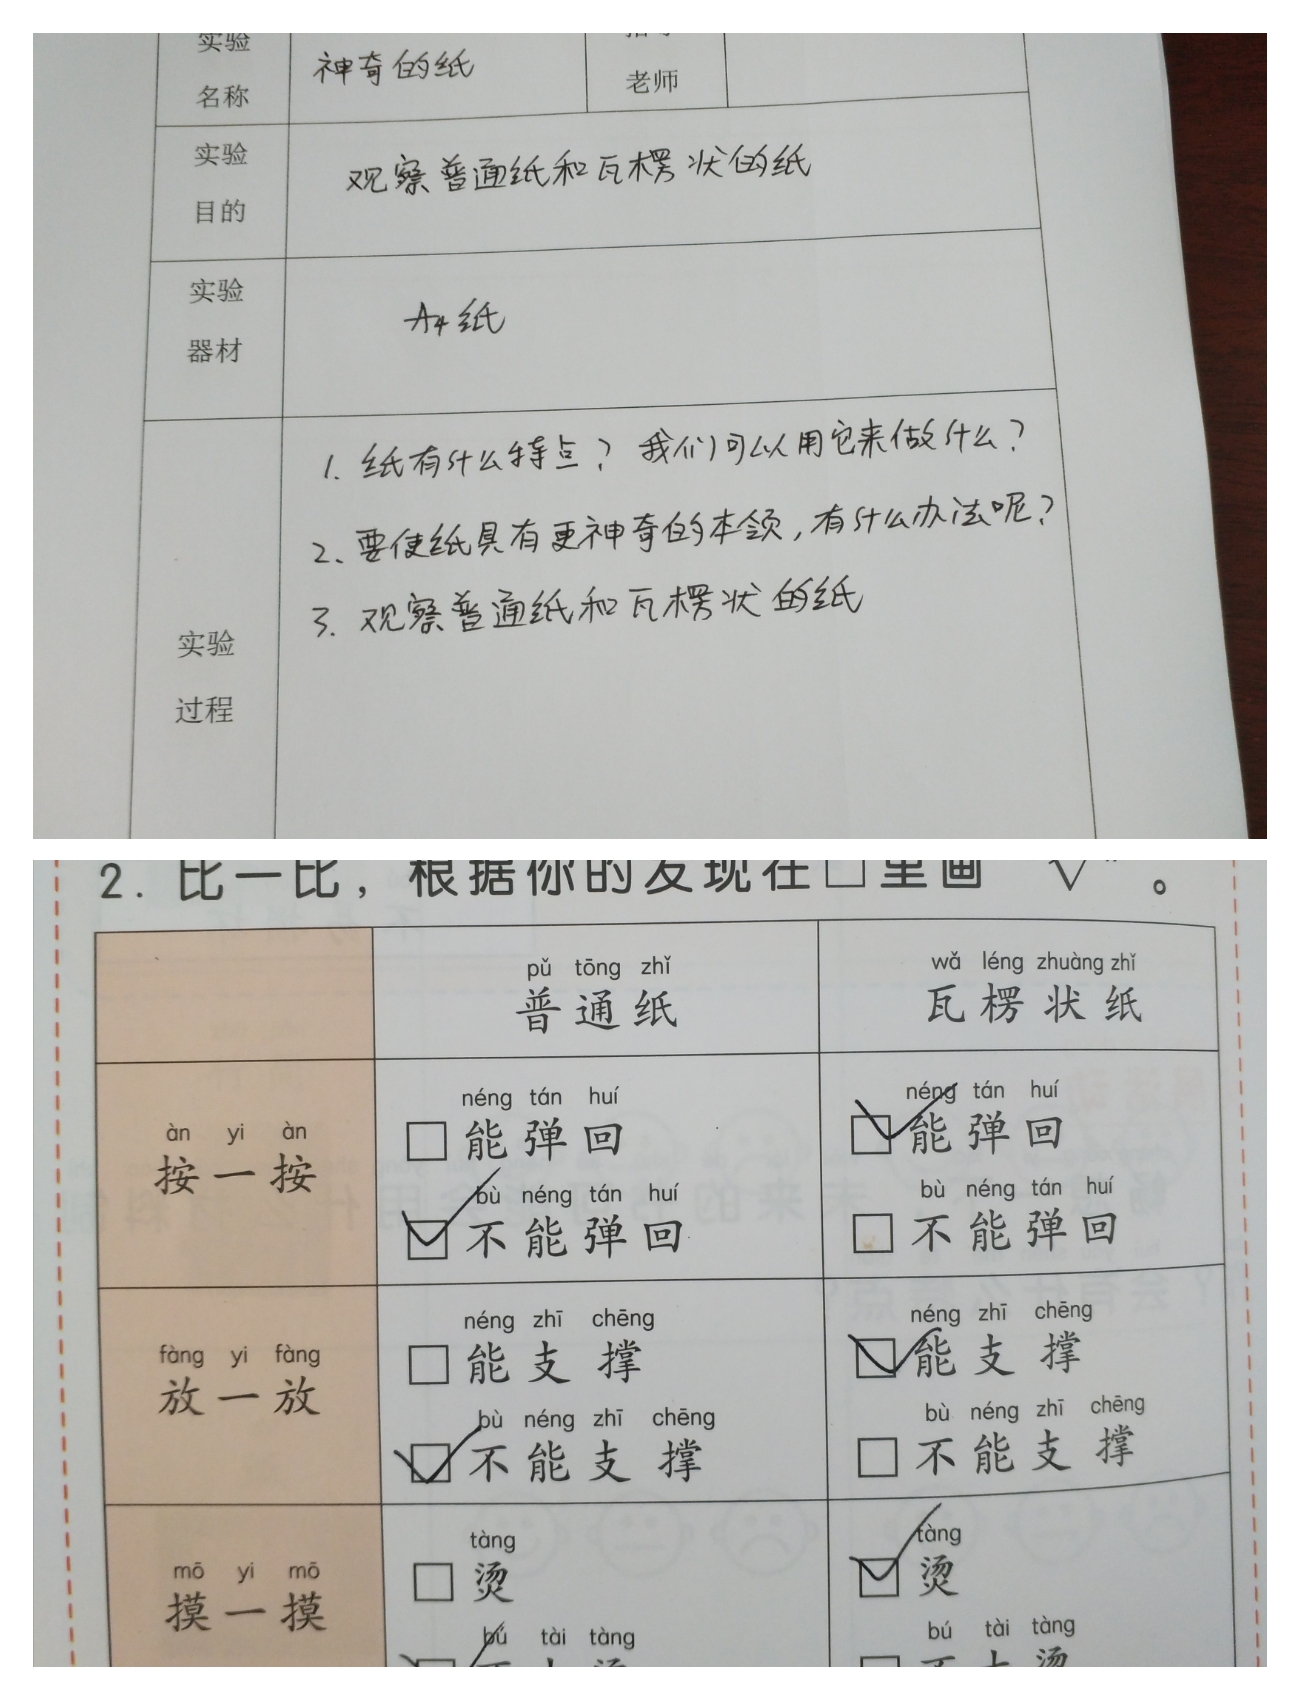 实验
名称
神奇的纸
老师
实验
目的
观察普通纸和瓦楞状的纸
实验
器材
A4纸
实验
过程
1. 纸有什么特点? 我们可以用它来做什么?
2、要使纸具有更神奇的本领,有什么办法呢?
3. 观察普通纸和瓦楞状的纸
2. 比一比,根据你的发现在□里画“√”。
pǔ tōng zhǐ
普通纸
wǎ léng zhuàng zhǐ
瓦楞状纸
àn yi àn
按一按
néng tán huí
□能弹回
bù néng tán huí
☑不能弹回
néng tán huí
☑能弹回
bù néng tán huí
□不能弹回
fàng yi fàng
放一放
néng zhī chēng
□能支撑
bù néng zhī chēng
☑不能支撑
néng zhī chēng
☑能支撑
bù néng zhī chēng
□不能支撑
mō yi mō
摸一摸
tàng
□烫
bú tài tàng
tàng
☑烫
bú tài tàng